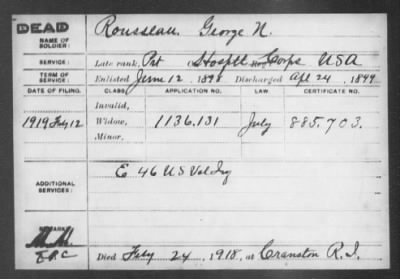 DEAD Rousseau, George N.
NAME OF SOLDIER:
SERVICE: Late rank, Pvt Hosptl Corps USA
TERM OF SERVICE: Enlisted June 12, 1898 Discharged Apl 24, 1899
DATE OF FILING. CLASS. APPLICATION NO. LAW. CERTIFICATE NO.
Invalid,
1919 Feby 12 Widow, 1136.131 July 885.703.
Minor,
E 46 US Vol Inf
ADDITIONAL SERVICES:
REMARKS:
Died Feby 24, 1918, at Cranston R.I.